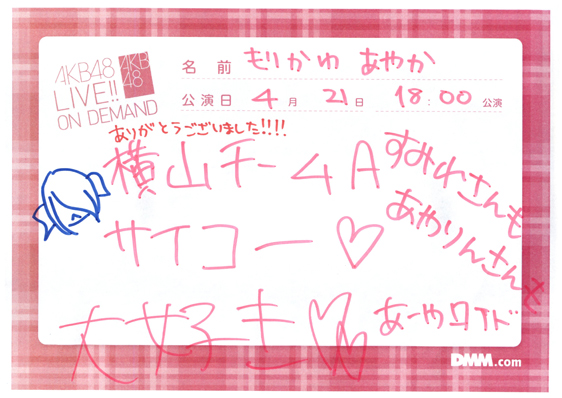 AKB48
LIVE!!
ON DEMAND
AKB
48
名前 もりかわ あやか
公演日 4月 21日 18:00 公演
ありがとうございました!!!!
横山チームA
サイコー♡
大好き♡♡
すみれさんも
あやりんさんも
あーやロイド
DMM.com